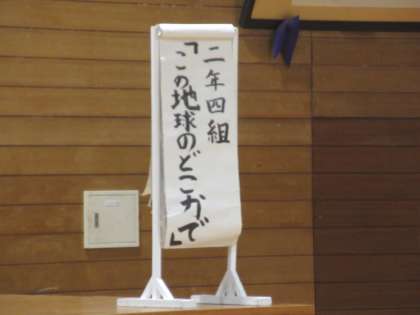 二年四組
「この地球のどこかで」